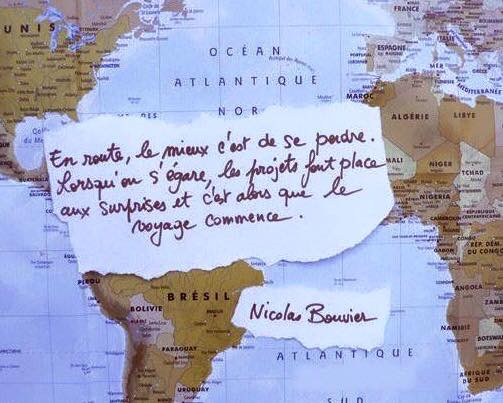 UNIS
FRANCE
OCÉAN
ATLANTIQUE
NOR
ESPAGNE
MAROC
ALGÉRIE
LIBYE
MALI
NIGER
TCHAD
NIGERIA
En route, le mieux c'est de se perdre.
Lorsqu'on s'égare, les projets font place
aux surprises et c'est alors que le
voyage commence.
Nicolas Bouvier
PÉROU
BRÉSIL
BOLIVIE
PARAGUAY
URUGUAY
RÉP. DÉM.
DU CONGO
ANGOLA
NAMIBIE
AFRIQUE
DU SUD
ATLANTIQUE
SUD